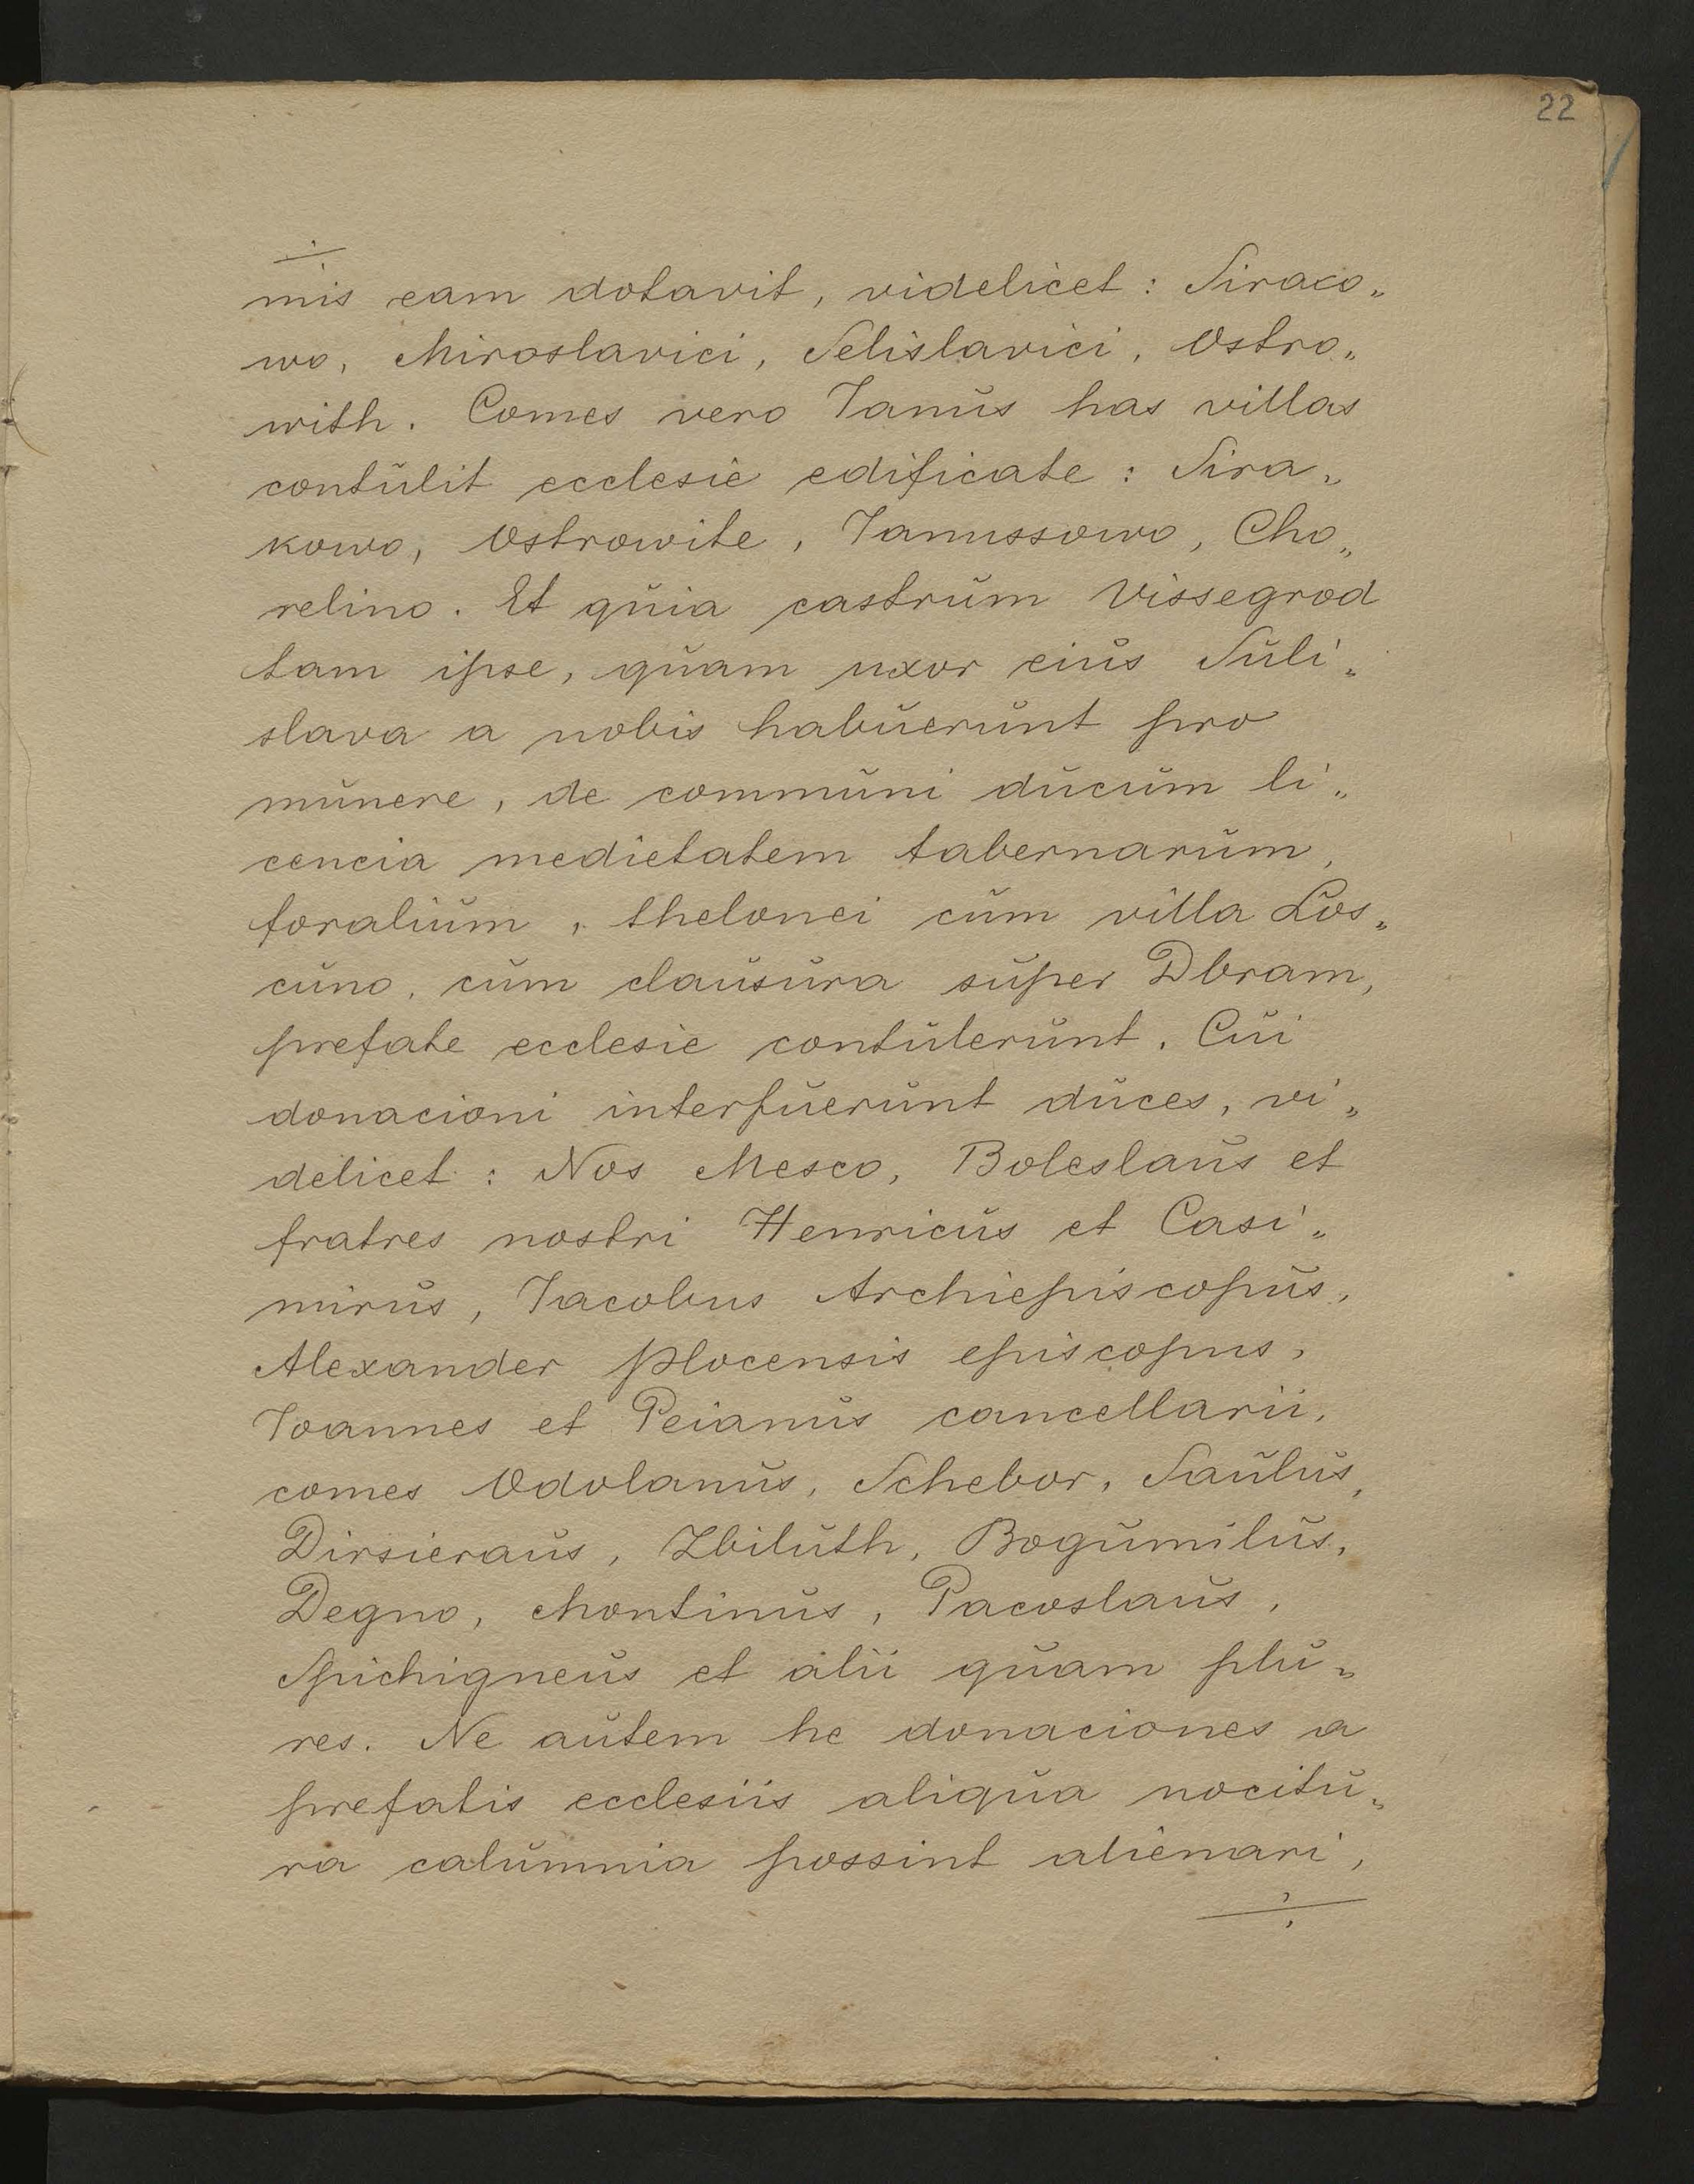 22
÷
mis eam dotavit, videlicet : Siraco„
wo, Miroslavici, Selislavici, Ostro„
with. Comes vero Janŭs has villas
contŭlit ecclesie edificate : Sira„
kowo, Ostrowite, Janussowo, Cho„
relino. Et qŭia castrŭm Vissegrod
tam ipse, qŭam uxor eiŭs Sŭli„
slava a nobis habŭerŭnt pro
mŭnere, de commŭni dŭcŭm li„
cencia medietatem tabernarŭm,
foralium, thelonei cŭm villa Lŭs„
cŭno, cŭm claŭsŭra sŭper Dbram,
prefate ecclesie contŭlerŭnt. Cŭi
donacioni interfŭerŭnt dŭces, vi„
delicet : Nos Mesco, Boleslaŭs et
fratres nostri Henricŭs et Casi„
mirŭs, Jacobus Archiepiscopŭs,
Alexander plocensis episcopus,
Joannes et Peianŭs cancellarii,
comes Odolanŭs, Schebor, Saŭlŭs,
Dirsieraŭs, Zbilŭth, Bogŭmilŭs,
Degno, Montinŭs, Pacoslaŭs,
Spichigneŭs et alii qŭam plŭ„
res. Ne aŭtem he donaciones a
prefatis ecclesiis aliqŭa nocitŭ„
ra calŭmnia possint alienari,
÷